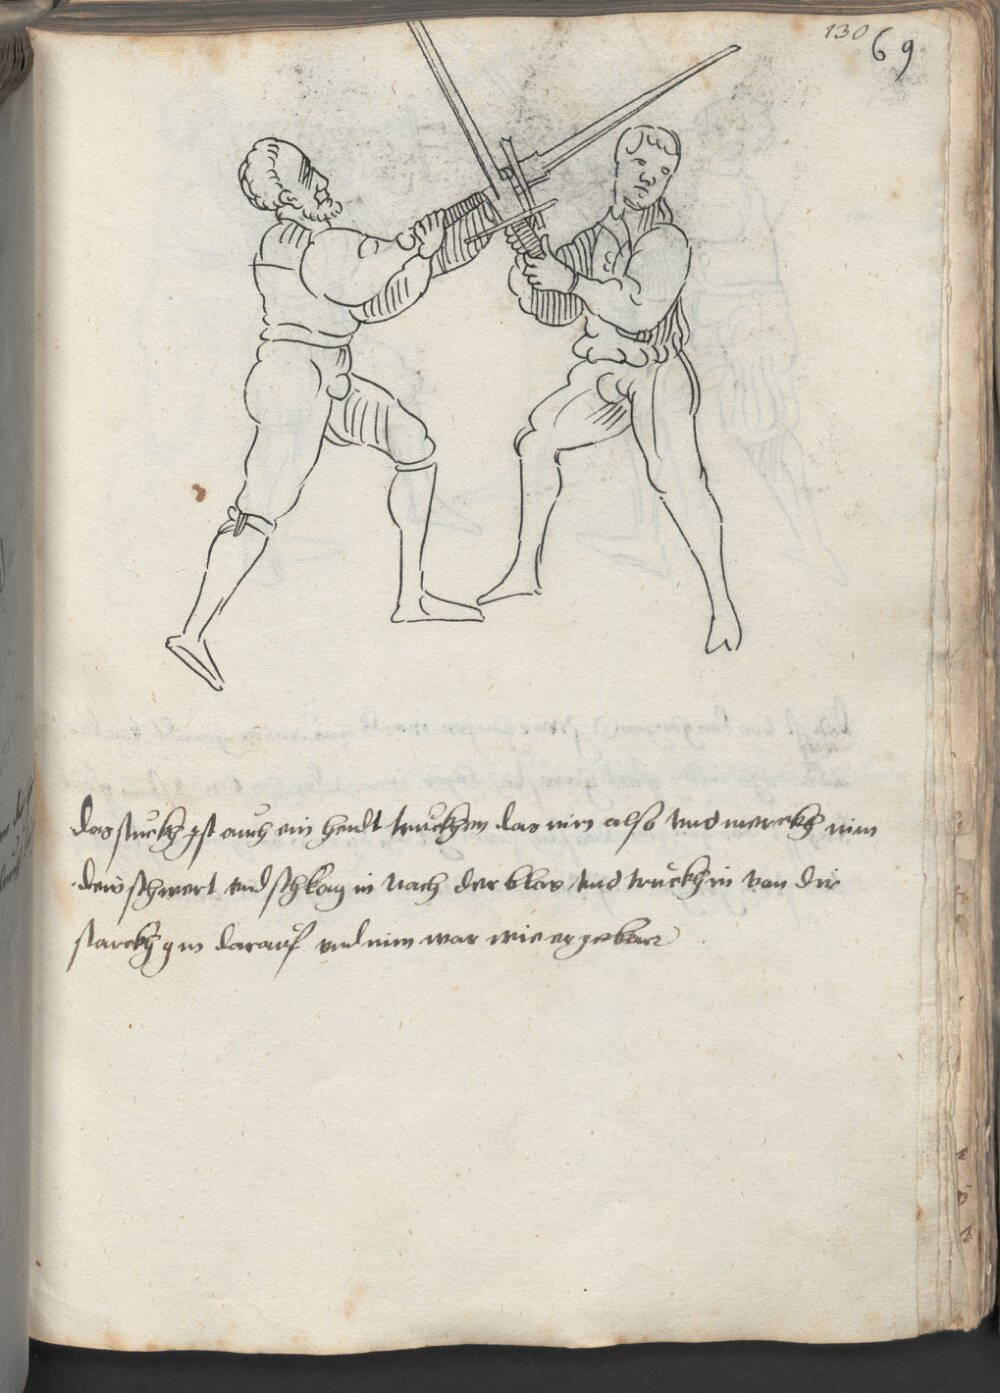 130
69
das stuckh ist auch ein hendt truckhen das nim also und merckh nim
dein schwert und schlag in nach der blos und truckh in von dir
starckh
darauf und nim war wie er geburt